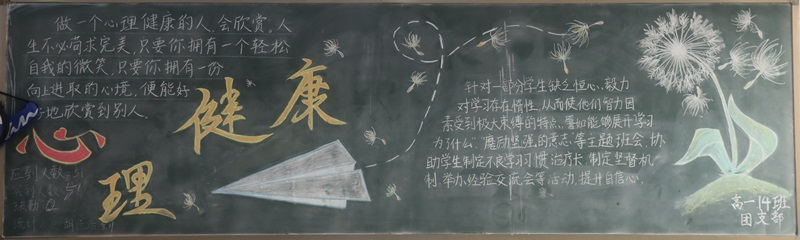 做一个心理健康的人,会欣赏,人
生不必苛求完美,只要你拥有一个轻松
自我的微笑,只要你拥有一份
向上进取的心境,便能好
好地欣赏到别人.
心
理
健
康
针对一部分学生缺乏恒心、毅力
对学习存在惰性,从而使他们智力因
素受到极大束缚的特点,譬如能够展开学习
为了什么、磨励坚强的意志、等主题班会,协
助学生制定不良学习习惯治疗长、制定监督机
制,举办经验交流会等活动,提升自信心.
高一14班
团支部
应到人数:51
实到人数:51